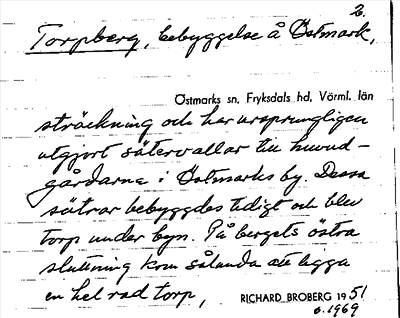 2.
Torpberg, bebyggelse å Östmark,
Östmarks sn, Fryksdals hd, Värml. län
sträckning och har ursprungligen
utgjort sätervallar till huvud-
gårdarna i Östmarks by. Dessa
sätrar bebyggdes tidigt och blev
torp under byn. På bergets östra
sluttning kom sålunda att ligga
en hel rad torp,
RICHARD BROBERG 1951
o. 1969